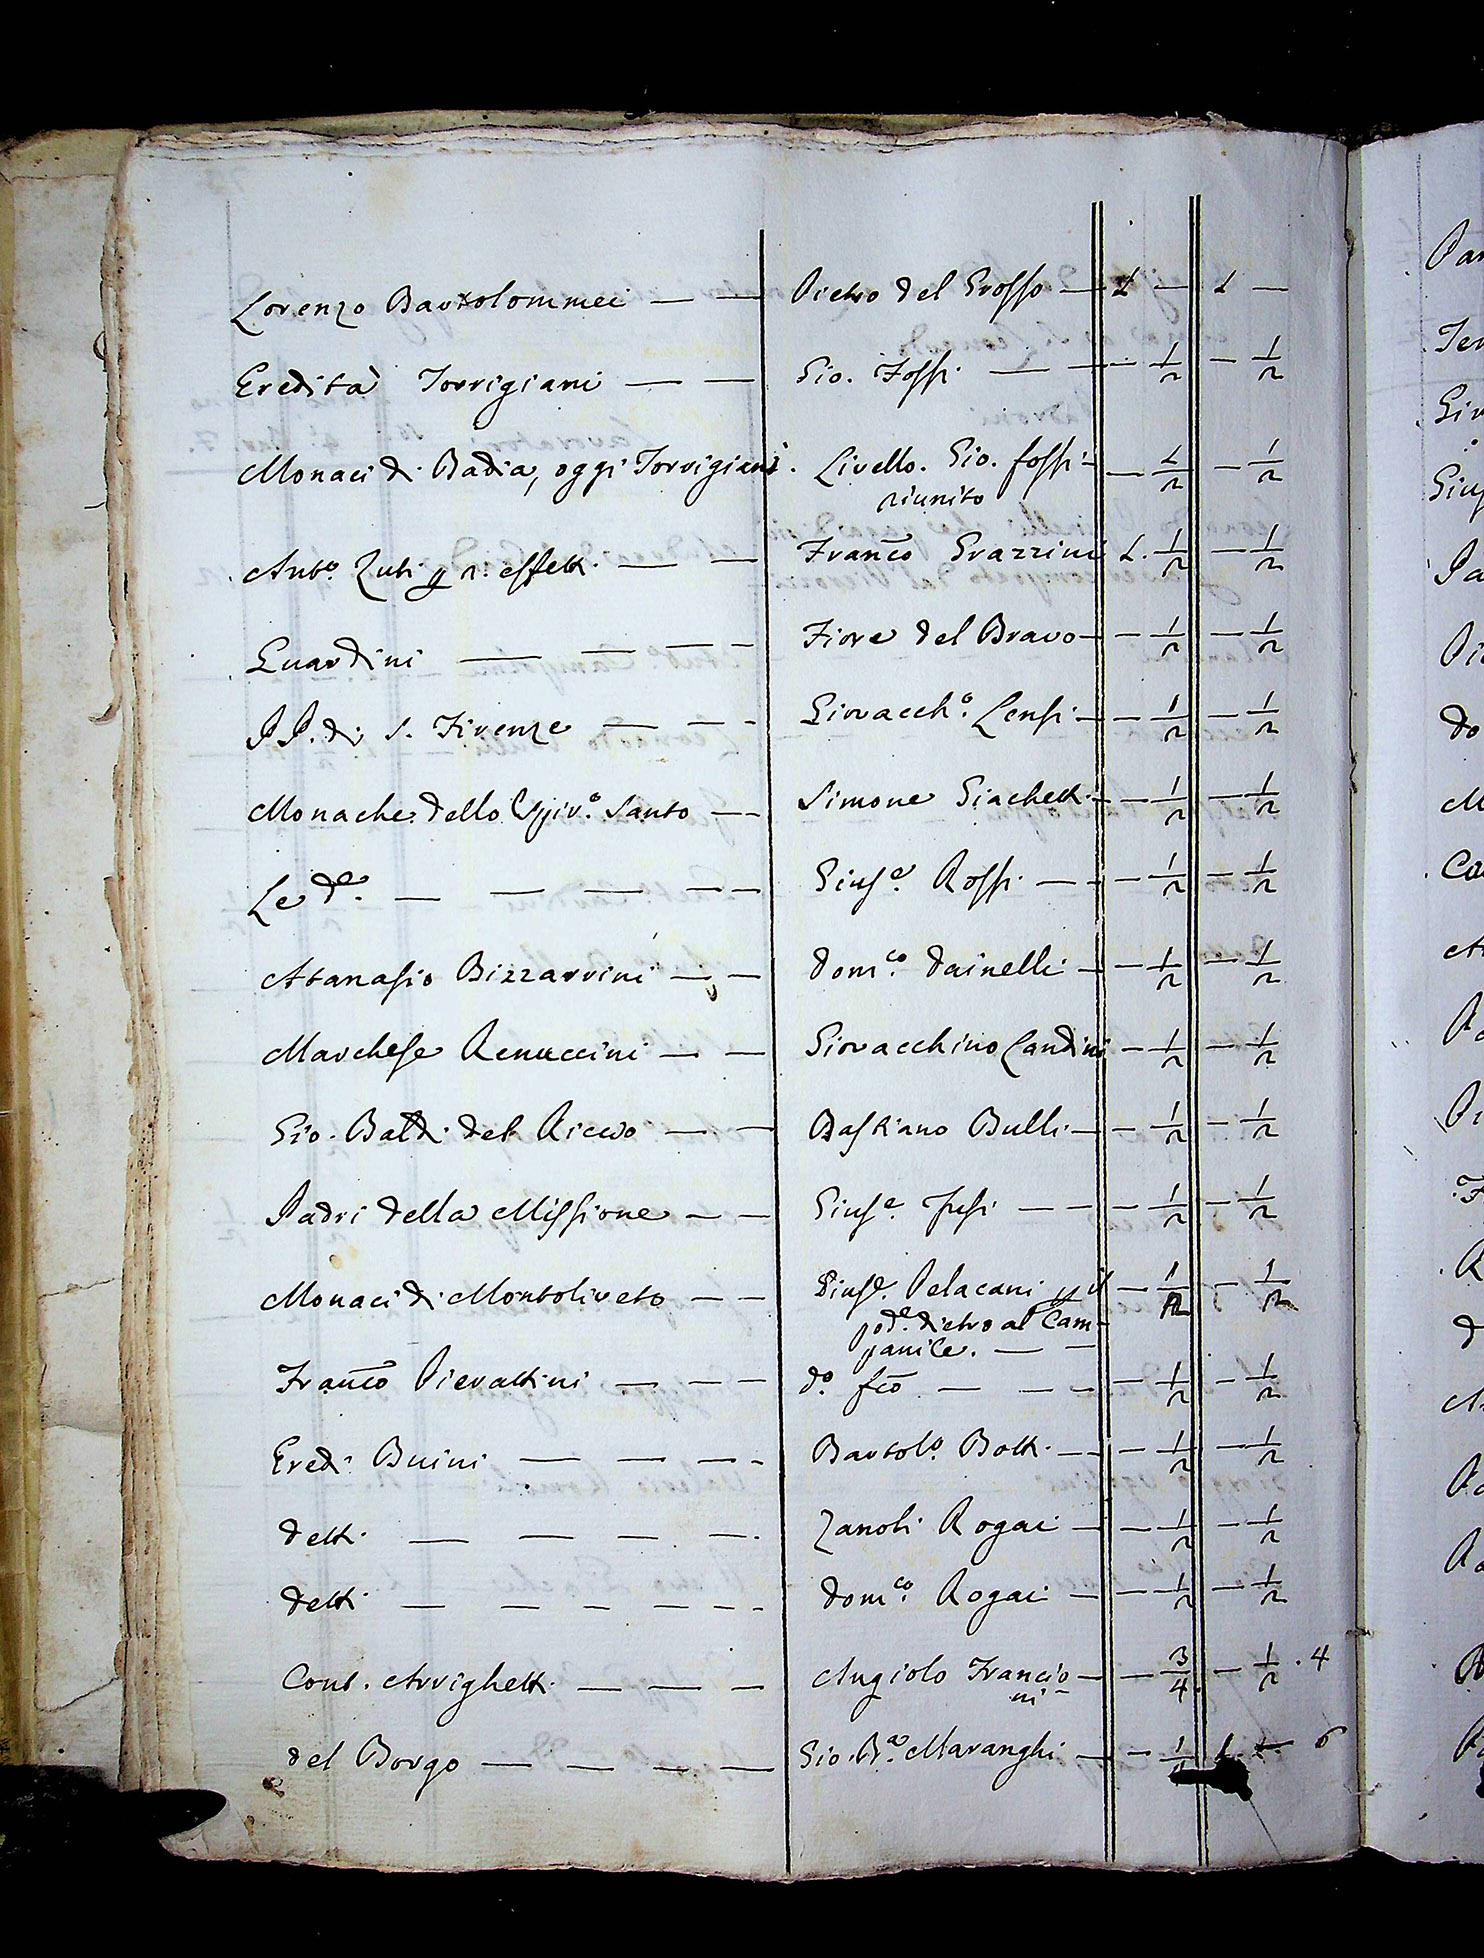 Lorenzo Bartolommei — — Pietro del Grosso — 1 — 1 —
Eredità Torrigiani — — Gio. Fossi — — — 1/2 — 1/2
Monaci di Badia, oggi Torrigiani. Livello. Gio. fossi — — 1/2 — 1/2
riunito
Anto. Zuti p r. effetti — — Franco Grazzini 1. 1/2 — 1/2
Guardini — — — — Fiore del Bravo — — 1/2 — 1/2
PP. di S. Firenze — — - Giovaccho. Lensi — — 1/2 — 1/2
Monache dello Spiro. Santo — - Simone Giachetti — — 1/2 — 1/2
Le de. — — — — — Giuse. Rossi — — — 1/2 — 1/2
Atanasio Bizzarrini — — Domco. Dainelli — — 1/2 — 1/2
Marchese Renuccini — — Giovacchino Landini — 1/2 — 1/2
Gio. Batti. del Ricco — — Bastiano Bulli — — 1/2 — 1/2
Padri della Missione — — Giuse. fusi — — — 1/2 — 1/2
Monaci di Montoliveto — — Giuse. Pelacani p il — 1/2 — 1/2
pode. dietro al Cam-
panile. — —
Franco Pierattini — — — do. fco — — — — 1/2 — 1/2
Eredi Buini — — — - Bartolo. Botti — — 1/2 — 1/2
detti — — — — Zanobi Rogai — — 1/2 — 1/2
detti — — — — — - Domco. Rogai — — 1/2 — 1/2
Cont. Arrighetti — — — Angiolo Francio — — 3/4 — 1/2 . 4
ni —
del Borgo — — — — Gio. Ba. Maranghi — — 1 6